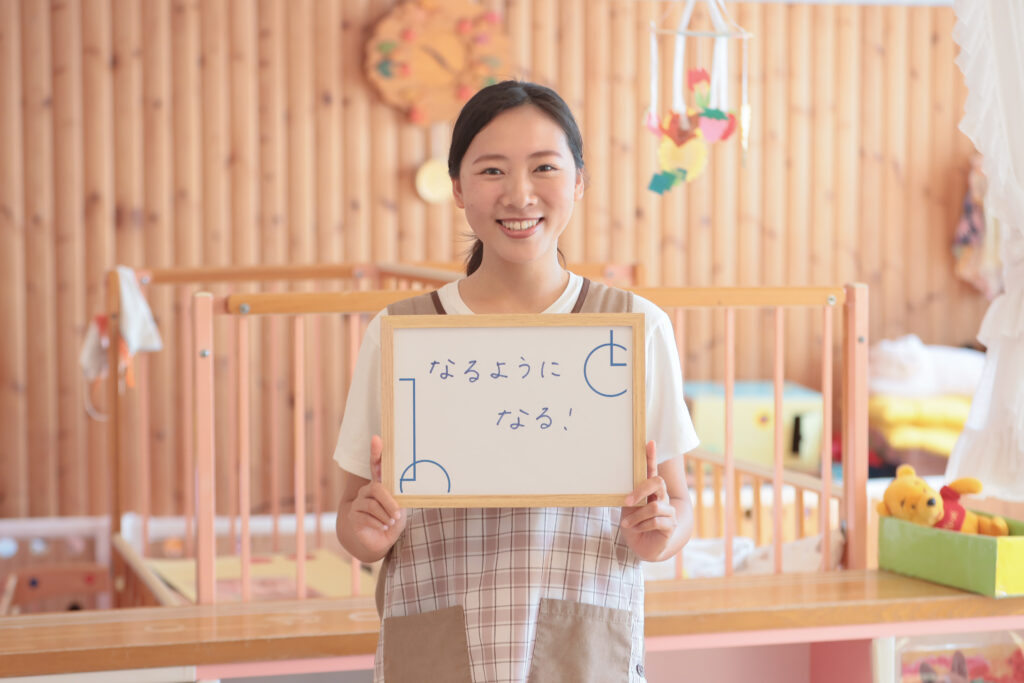 なるように
なる!